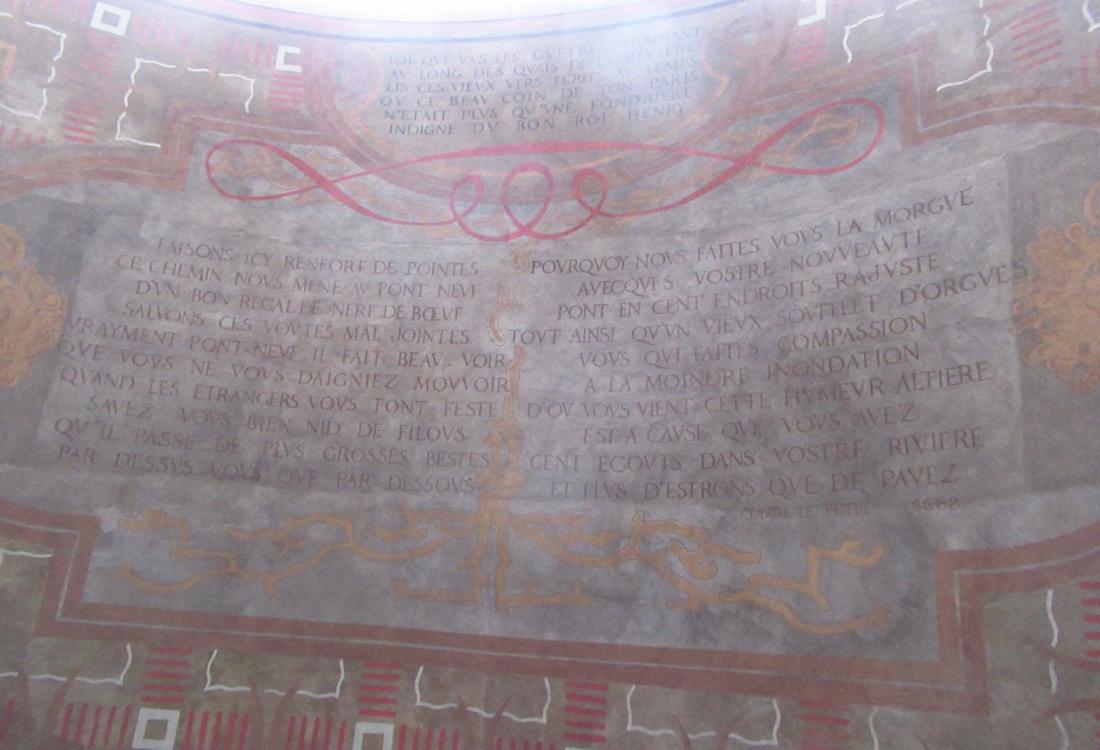 TOI QUE VAS LES GUETRES TRAINANT
AV LONG DES QVAIS DE LA RIVIERE
LIS CES VIEVX VERS ECRITS AV TEMPS
OV CE BEAV COIN DE TON PARIS
N'ETAIT PLVS QV'VNE FONDRIERE
INDIGNE DV BON ROI HENRY
FAISONS ICY RENFORT DE POINTES
CE CHEMIN NOVS MENE AV PONT NEVF
D'VN BON REGALÉ DE NERF DE BŒVF
SALVONS CES VOVTES MAL JOINTES
VRAYMENT PONT-NEVF IL FAIT BEAV VOIR
QVE VOVS NE VOVS DAIGNIEZ MOVVOIR
QVAND LES ETRANGERS VOVS FONT FESTE
SAVEZ VOVS BIEN NID DE FILOVS
QV'IL PASSE DE PLVS GROSSES BESTES
PAR DESSVS VOVS QVE PAR DESSOVS
POVRQVOY NOVS FAITES VOVS LA MORGVE
AVECQVES VOSTRE NOVVEAVTE
PONT EN CENT ENDROITS RAJVSTE
TOVT AINSI QV'VN VIEVX SOVFLET D'ORGVES
VOVS QVI FAITES COMPASSION
A LA MOINDRE INONDATION
D'OV VOVS VIENT CETTE HVMEVR ALTIERE
EST A CAVSE QVE VOVS AVEZ
CENT EGOVTS DANS VOSTRE RIVIERE
ET PLVS D'ESTRONS QVE DE PAVEZ
CLAVDE LE PETIT 1668